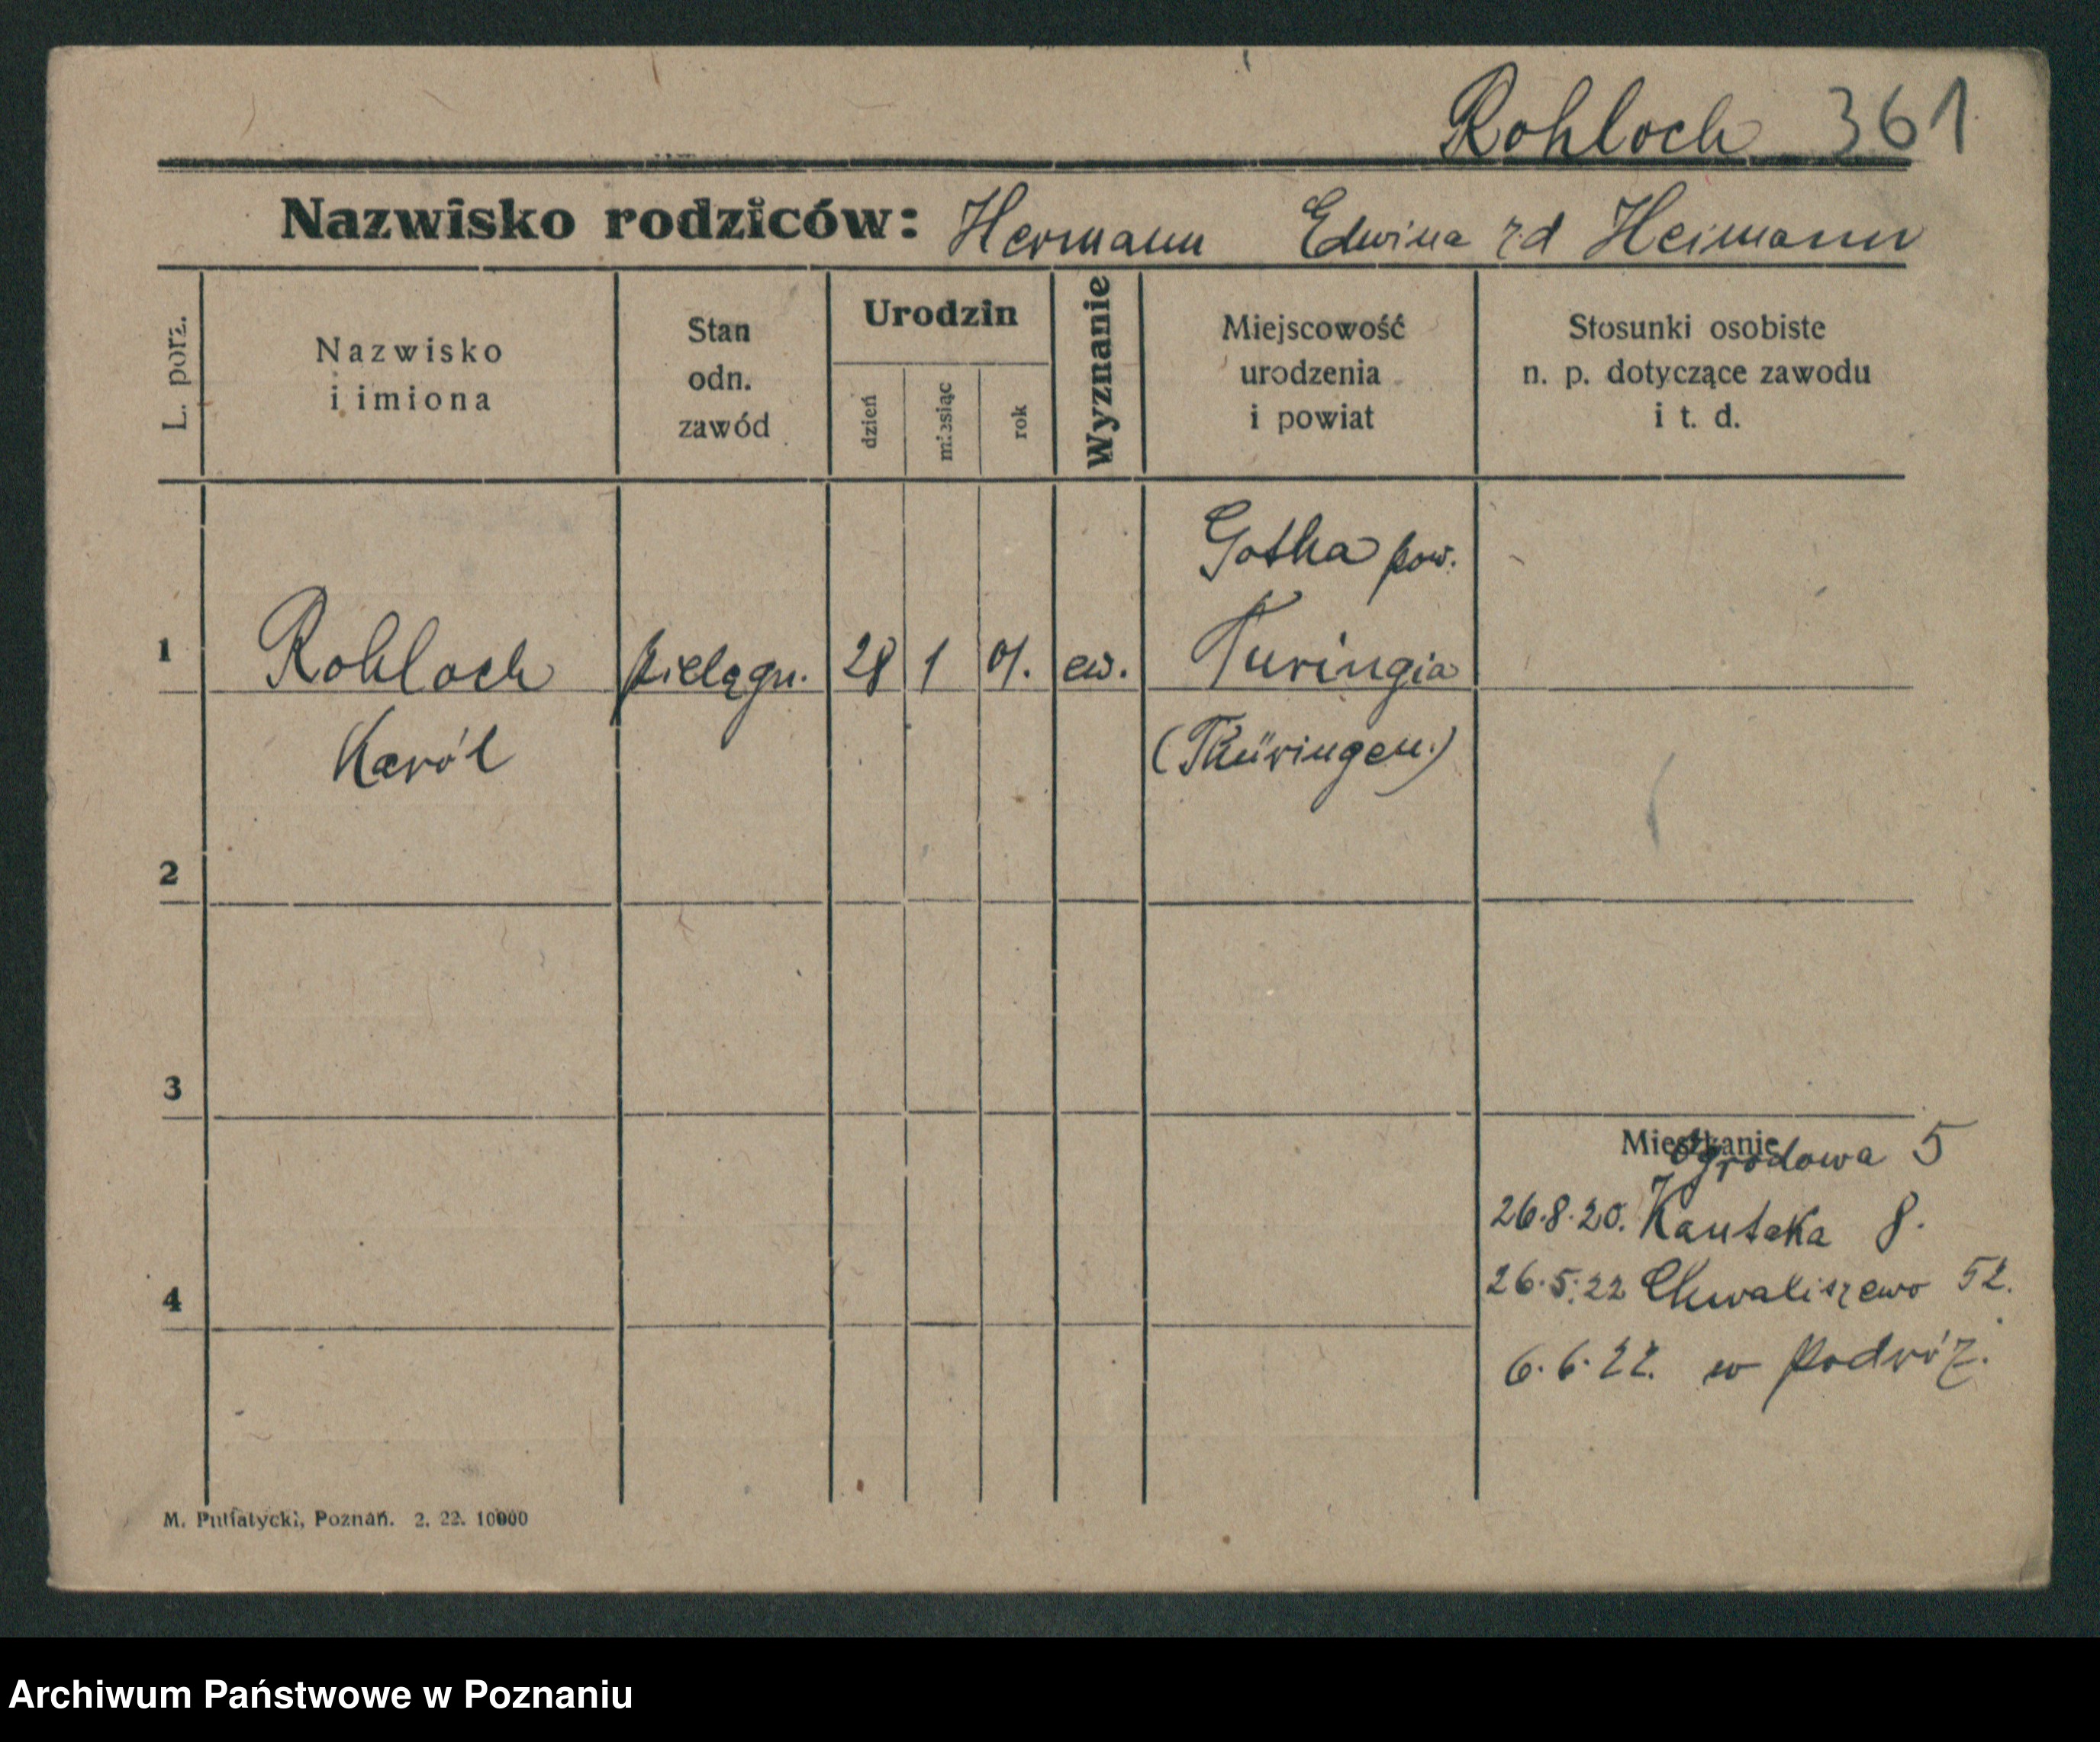 Rohloch 361
Nazwisko rodziców: Hermann Edwina zd Heimann
L. porz.
Nazwisko
i imiona
Stan
odn.
zawód
Urodzin
dzień
miesiąc
rok
Wyznanie
Miejscowość
urodzenia
i powiat
Stosunki osobiste
n. p. dotyczące zawodu
i t. d.
Gotha pow.
1 Rohloch pielęgn. 28 1 01. ew. Turingia
Karól (Thüringen.)
2
3
Mieszkanie
Ogrodowa 5
26.8.20. Kantaka 8.
26.5.22 Chwaliszewo 52.
4
6.6.22. w podróż.
M. Putiatycki, Poznań. 2. 22. 10000
Archiwum Państwowe w Poznaniu